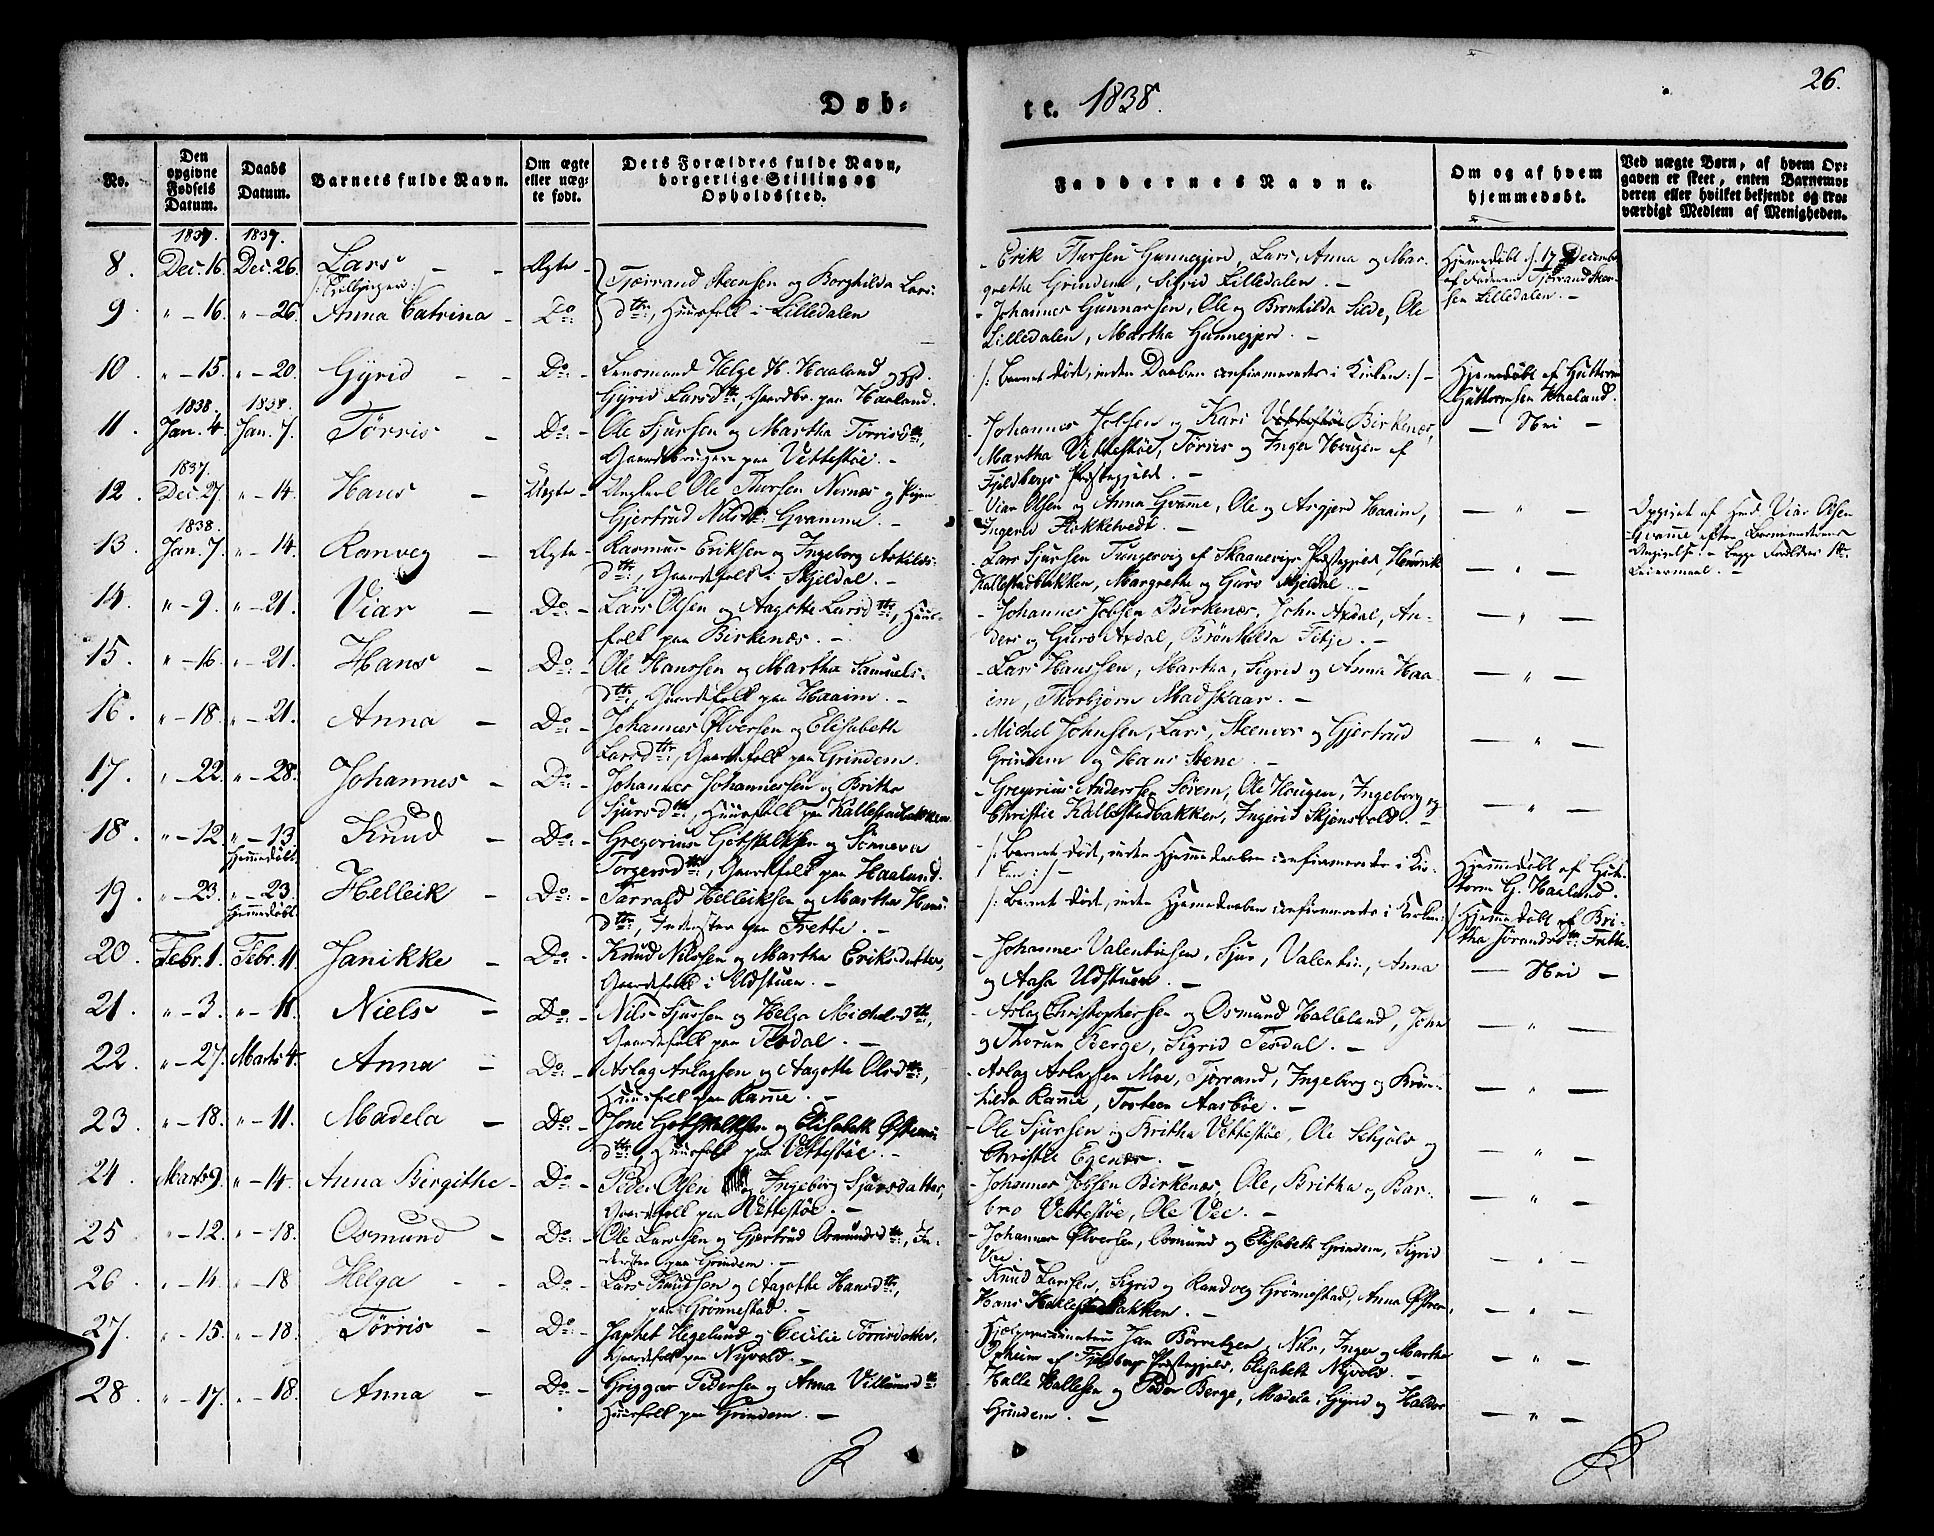 26.
Døb-
te. 1838.
No.
Den opgivne Fødsels Datum.
Daabs Datum.
Barnets fulde Navn.
Om ægte eller uægte født.
Dets Forældres fulde Navn, borgerlige Stilling og Opholdssted.
Faddernes Navne.
Om og af hvem hjemmedøbt.
Ved uægte Børn, af hvem Opgaven er skeet, enten Barnemoderen eller hvilket bekjendt og troværdigt Medlem af Menigheden.
1837. 1837.
8. Dec. 16. Dec. 26. Lars - - Ægte - Tjærand Steensen og Borghilda Lars-
Erik Thorsen Gunnegjerd, Lars, Anna og Mar-
grethe Grindem, Sigrid Lilledalen. -
Hjemmedøbt d. 17 December
af Faderen Tjerand Steen-
sen Lilledalen. -
/: Tvillinger :/
9. " - 16. " - 26. Anna Catrina - Do: dtr:, Huusfolk i Lilledalen
- Johannes Gunnarsen, Ole og Brønhilda Silde, Ole
Lilledalen, Martha Gunnegjerd. -
10. " - 15. " - 20. Gyrid - - Do: - Lensmand Helge H. Haaland og
Gyrid Larsdtr:, Gaardbr. paa Haaland.
/: Barnet død, inden Daaben confirmeredes i Kirken :/ -
Hjemmedøbt af Guttorm
Guttormsen Haaland.
1838. 1838.
11. Jan. 4. Jan. 7. Tørris - Do: - Ole Sjursen og Martha Tørrisdtr:,
Gaardbruger paa Vettestøe. -
- Johannes Jobsen og Kari Vettestøe Birkenæs,
Martha Vettestøe, Tørris og Inger Hougen af
Fjeldbergs Præstegjeld. -
- Nei -
1837.
12. Dec. 27. " - 14. Hans - Uægte - Ungkarl Ole Thorsen Nernæs og Pigen
Gjertrud Nilsdtr: Qvamme. -
- Viar Olsen og Anna Qvamme, Ole og Asgjerd Haaim,
Ingerid Flokketvedt. -
- " -
Opgivet af Fad. Viar Olsen
Qvamme efter Barnemoderens
Angivelse. - begge Forældres 1ste
Leiermaal. -
1838.
13. Jan. 7. " - 14. Ranveg - Ægte - Rasmus Eriksen og Ingeborg Askilds-
dtr:, Gaardfolk i Skjeldal. -
- Lars Sjursen Tungesvig af Skaanevigs Præstegjeld, Henrik
Kallestadbakken, Margrethe og Guro Skjeldal. -
- " -
14. " - 9. " - 21. Viar - Do: - Lars Olsen og Aagothe Larsdtr:, Huus-
folk paa Birkenæs. -
- Johannes Jobsen Birkenæs, John Axdal, An-
ders og Guro Axdal, Brønhilda Fitje. -
- " -
15. " - 16. " - 21. Hans - Do: - Ole Hanssen og Martha Samuels-
dtr:, Gaardfolk paa Haaim. -
- Lars Hanssen, Martha, Sigrid og Anna Haa-
im, Thorbjørn Madskaar. -
- " -
16. " - 18. " - 21. Anna - Do: - Johannes Ølversen og Elisabeth
Larsdtr:, Gaardsfolk paa Grindem.
- Michel Johnsen, Lars, Steenver og Gjertrud
Grindem og Hans Stene. -
- " -
17. " - 22. " - 28. Johannes - Do: - Johannes Johannessen og Britha
Sjursdtr:, Huusfolk paa Kallestadbakken.
- Gregorius Anderssen Sørem, Ole Hougen, Ingeborg og
Christie Kallestadbakken, Ingerid Skjønsvold. -
- " -
18. " - 12. " - 13. Knud - Do: - Gregorius Gotskalksen og Sønneva
Hjemmedøbt.
Torgersdtr:, Gaardfolk paa Haaland.
/: Barnet død, inden Hjemmedaaben confirmeredes i Kir-
ken :/ -
Hjemmedøbt af Gut-
torm G. Haaland.
19. " - 23. " - 23. Helleik - Do: - Tarrald Helleiksen og Martha Hans-
Hjemmedøbt.
dtr:, Inderster paa Frette. -
/: Barnet død, inden Hjemmedaaben confirmeredes i Kirken :/
Hjemmedøbt af Bri-
tha Jørandsdtr: Frette.
20. Febr. 1. Febr. 11. Janikke - Do: - Knud Nilssen og Martha Eriksdatter,
Gaardfolk i Udstuen. -
- Johannes Valentinsen, Sjur, Valentin, Anna
og Aasa Udstuen. -
- Nei -
21. " - 3. " - 11. Niels - Do: - Nils Sjursen og Helga Michelsdtr:,
Gaardsfolk paa Tesdal. -
- Aslag Christophersen og Osmund Halleland, John
og Thoran Berge, Sigrid Tesdal. -
- " -
22. " - 27. Marts 4. Anna - Do: - Aslag Aslagsen og Aagothe Olsdtr:,
Huusfolk paa Ramme. -
- Aslag Aslagsen Moe, Tjerand, Ingeborg og Brøn-
hilda Ramme, Torsteen Aarbøe. -
- " -
23. " - 18. " - 11. Madela - Do: - Jone Gotskalksen og Elisabeth Østens-
dtr:, Huusfolk paa Vettestøe. -
- Ole Sjursen og Britha Vettestøe, Ole Schjols og
Christie Egenæs. -
- " -
24. Marts 9. " - 14. Anna Birgithe - Do: - Peder Olsen og Ingeborg Sjursdatter,
Gaardfolk paa Vettestøe. -
- Johannes Jobsen Birkenæs, Ole, Britha og Bar-
bro Vettestøe, Ole Vee. -
- " -
25. " - 12. " - 18. Osmund - Do: - Ole Larssen og Gjertrud Osmundsdtr:, In-
derster paa Grindem. -
- Johannes Ølversen, Osmund og Elisabeth Grindem, Sigrid
Vee. -
- " -
26. " - 14. " - 18 Helga - - Do: - Lars Knudsen og Aagothe Hansdtr:,
paa Grønnestad. -
- Knud Larssen, Sigrid og Randveg Grønnestad, Anna Østrem,
Hans Kallestadbakken. -
- " -
27. " - 15. " - 18. Tørris - Do: - Japhet Hegelund og Cecilie Tørrisdatter,
Gaardsfolk paa Nyvold. -
Hjelpe Jan Børretzen, Nils, Inger og Martha
Opheim af Fjeldbergs Præstegjeld, Elisabeth Nyvold. -
- " -
28. " - 17. " - 18. Anna - Do: - Griggar Pedersen og Anna Villumsdtr:
Huusfolk paa Grindem. -
Halle Hallesen og Peder Berge, Madela, Gyrid og Haldor
Grindem. -
- " -